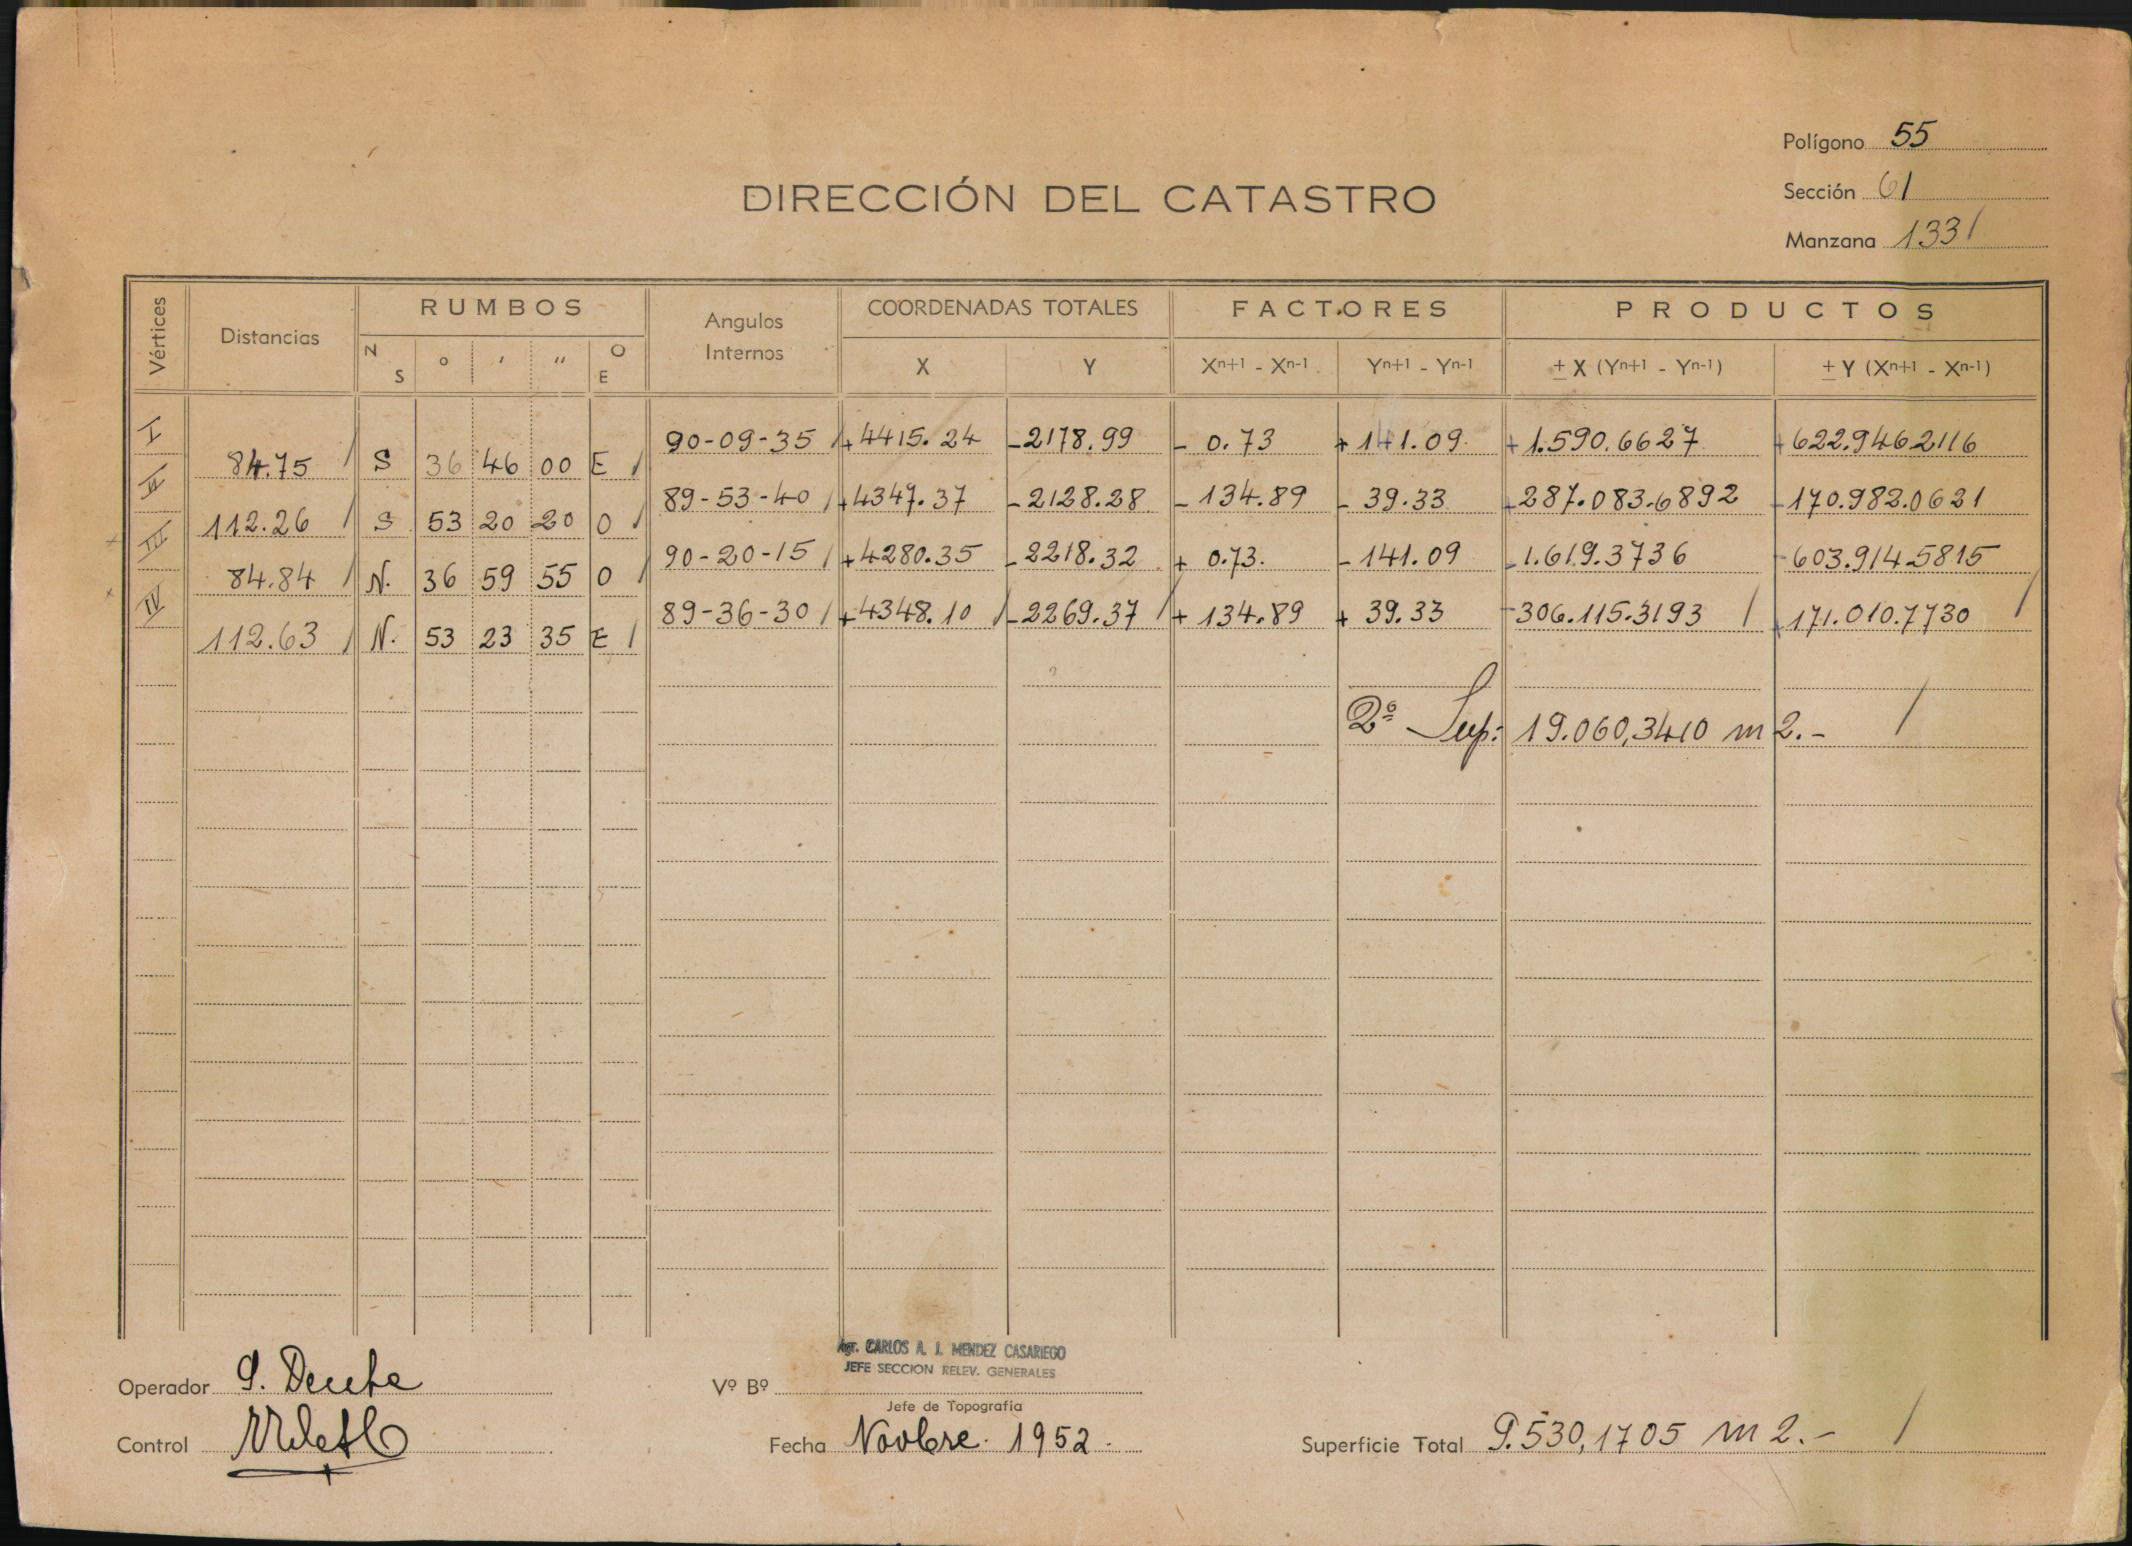 Polígono 55
DIRECCIÓN DEL CATASTRO
Sección 61
Manzana 1331
Vértices
Distancias
RUMBOS
N S ° ' " O E
Angulos Internos
COORDENADAS TOTALES
X Y
FACTORES
Xn+1 - Xn-1 Yn+1 - Yn-1
PRODUCTOS
± X (Yn+1 - Yn-1) ± Y (Xn+1 - Xn-1)
I 90-09-35 +4415.24 -2178.99 - 0.73 + 141.09 +1.590.6627 +622.9462116
84.75 S 36 46 00 E
II 89-53-40 +4347.37 -2128.28 - 134.89 - 39.33 +287.083.6892 -170.982.0621
112.26 S 53 20 20 O
III 90-20-15 +4280.35 -2218.32 + 0.73. - 141.09 -1.619.3736 -603.914.5815
84.84 N. 36 59 55 O
IV 89-36-30 +4348.10 -2269.37 + 134.89 + 39.33 -306.115.3193 +171.010.7730
112.63 N. 53 23 35 E
2ª Sup: 19.060,3410 m2.-
Agr. CARLOS A. J. MENDEZ CASARIEGO
JEFE SECCION RELEV. GENERALES
Operador
Vº Bº
Jefe de Topografía
Control
Fecha Novbre. 1952.
Superficie Total 9.530,1705 m2.-